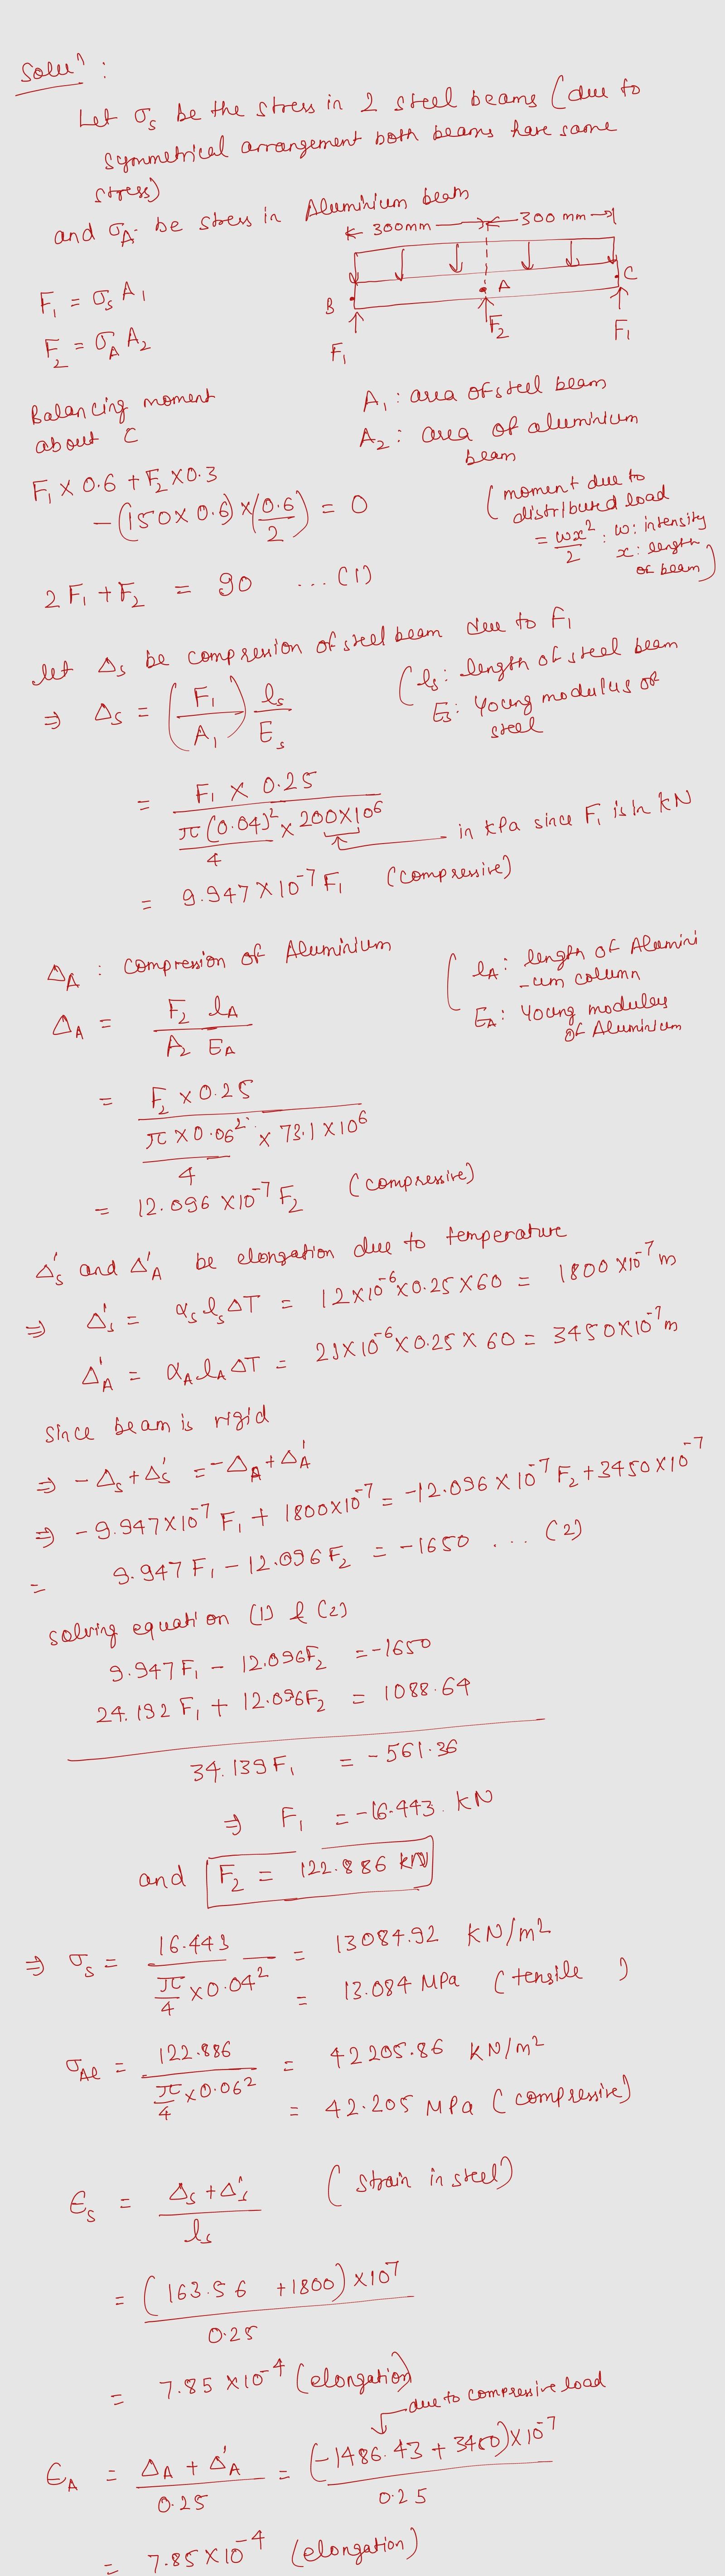 Solun :
Let σs be the stress in 2 steel beams (due to
symmetrical arrangement both beams have same
stress)
and σA be stress in Aluminium beam
300mm 300 mm
F1 = σs A1
F2 = σA A2
B A C
F1 F2 F1
Balancing moment
about C
A1 : area of steel beam
A2 : area of aluminium
beam
F1 × 0.6 + F2 × 0.3
- (150 × 0.6) × (0.6/2) = 0
(moment due to
distributed load
= wx²/2 : w: intensity
x: length
of beam)
2F1 + F2 = 90 ... (1)
let Δs be compression of steel beam due to F1
⇒ Δs = (F1/A1) ls/Es
(ls: length of steel beam
Es: Young modulus of
steel
= F1 × 0.25 / (π(0.04)²/4 × 200×10^6)
in kPa since F1 is in kN
= 9.947 × 10^-7 F1 (compressive)
ΔA : compression of Aluminium
(lA: length of Alumini
-um column
EA: Young modulus
of Aluminium
ΔA = F2 lA / A2 EA
= F2 × 0.25 / (π × 0.06²/4 × 73.1 × 10^6)
= 12.096 × 10^-7 F2 (compressive)
Δs' and ΔA' be elongation due to temperature
⇒ Δs' = αs ls ΔT = 12×10^-6 × 0.25 × 60 = 1800 × 10^-7 m
ΔA' = αA lA ΔT = 23×10^-6 × 0.25 × 60 = 3450×10^-7 m
since beam is rigid
⇒ -Δs + Δs' = -ΔA + ΔA'
⇒ -9.947×10^-7 F1 + 1800×10^-7 = -12.096 × 10^-7 F2 + 3450×10^-7
= 9.947 F1 - 12.096 F2 = -1650 ... (2)
solving equation (1) & (2)
9.947 F1 - 12.096F2 = -1650
24.192 F1 + 12.096F2 = 1088.64
34.139F1 = -561.36
⇒ F1 = -16.443 kN
and F2 = 122.886 kN
⇒ σs = 16.443 / (π/4 × 0.04²) = 13084.92 KN/m²
= 13.084 MPa (tensile )
σAl = 122.886 / (π/4 × 0.06²) = 42205.86 KN/m²
= 42.205 MPa (compressive)
εs = (Δs + Δs')/ls (strain in steel)
= (163.56 + 1800) × 10^7 / 0.25
= 7.85 × 10^-4 (elongation)
due to compressive load
εA = (ΔA + ΔA')/0.25 = (-1486.43 + 3450) × 10^-7 / 0.25
= 7.85 × 10^-4 (elongation)